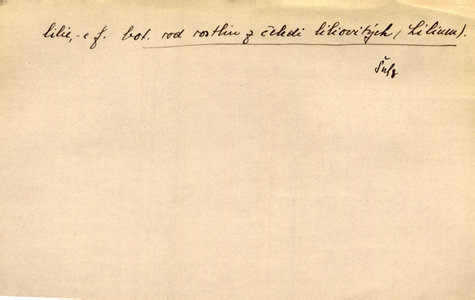 lilie, -e f. bot. rod rostlin z čeledi liliovitých (Lilium).